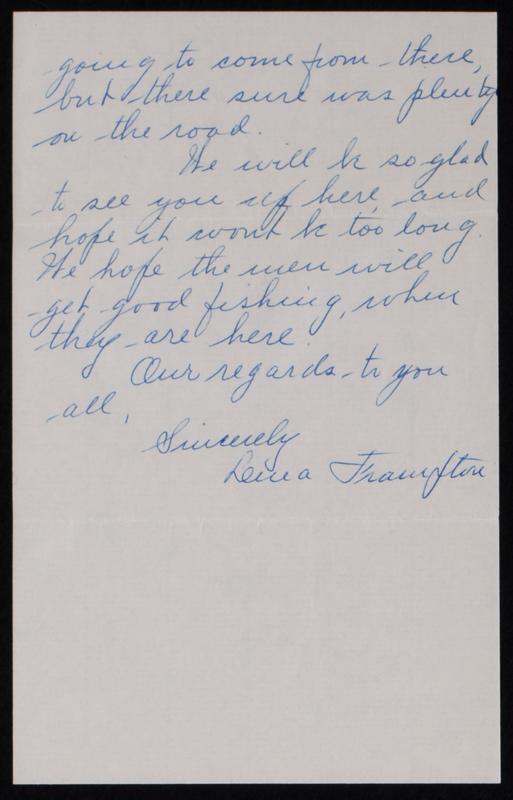 going to come from there,
but there sure was plenty
on the road.
We will be so glad
to see you up here, and
hope it wont be too long.
We hope the men will
get good fishing, when
they are here.
Our regards to you
all,
Sincerely
Lena Frampton